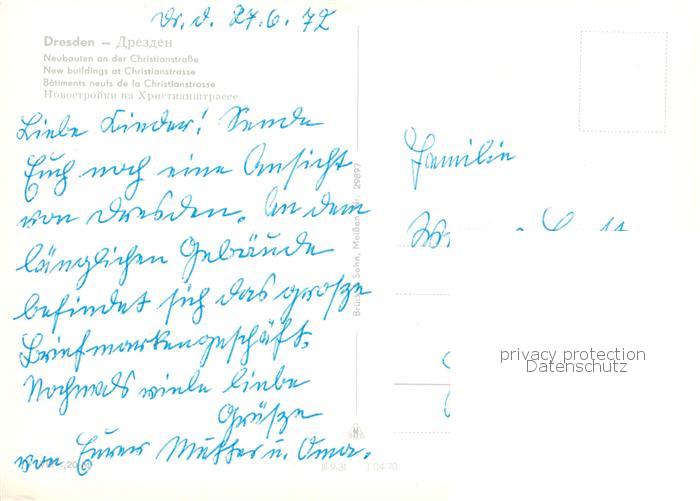 Dr. d. 27.6.72
Dresden – Дрезден
Neubauten an der Christianstraße
New buildings at Christianstrasse
Bâtiments neufs de la Christianstrasse
Новостройки на Христианштрассе
Liebe Kinder! Sende
Euch noch eine Ansicht
von Dresden. In dem
länglichen Gebäude
befindet sich das grosze
Briefmarkengeschäft.
Nochmals viele liebe
Grüsze
von Eurer Mutter u. Oma.
Familie
Brück & Sohn, Meißen 29897
III-9-31 04-70
privacy protection
Datenschutz